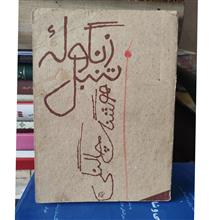 زنگوله
تنبل
هوشنگ چالنگی